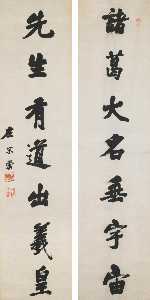 諸葛大名垂宇宙
先生有道出羲皇
左宗棠